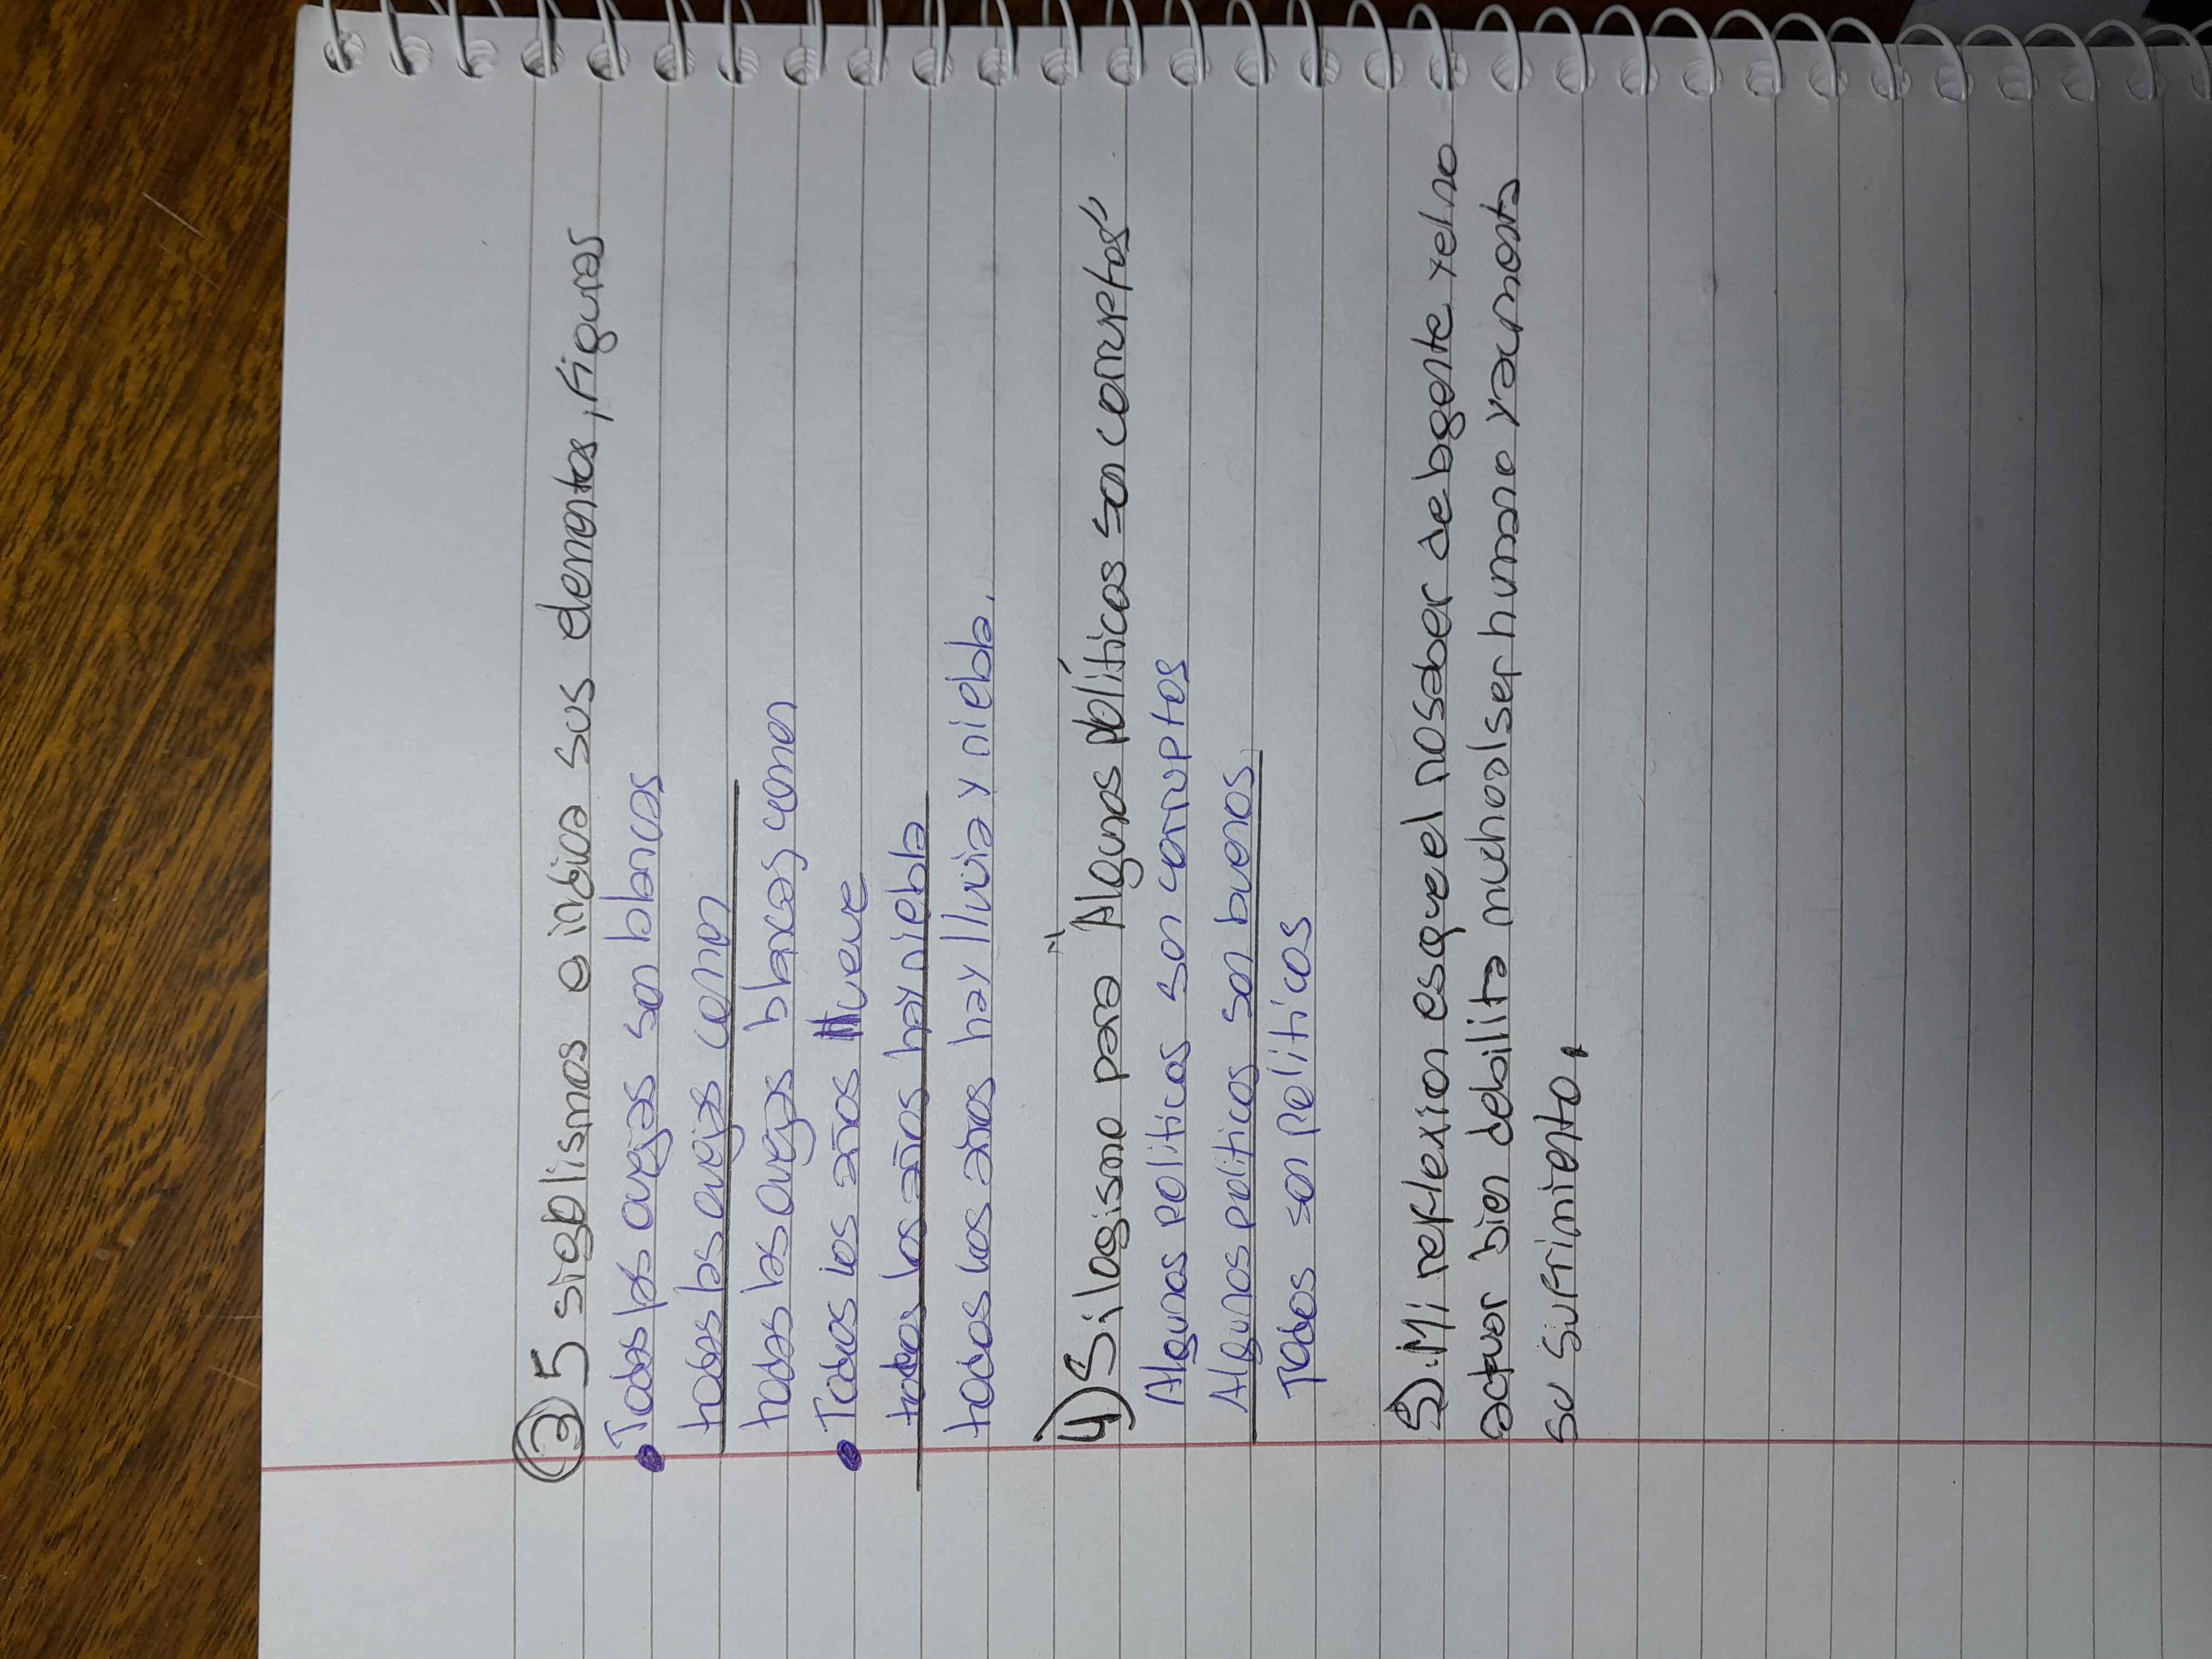 ③ 5 sigolismos e indica sus elementos, figuras
• Todas las ovejas son blancas
todas las ovejas comen
todas las ovejas blancas, comen
• Todos los años llueve
todos los años hay niebla
todos los años hay lluvia y niebla.
4) Silogismo para "Algunos políticos son corruptos"
Algunos politicos son corruptos
Algunos politicos son buenos
Todos son politicos
5). Mi reflexion es que el no saber de la gente y el no
actuar bien debilita mucho al ser humano y aumenta
su sufrimiento.